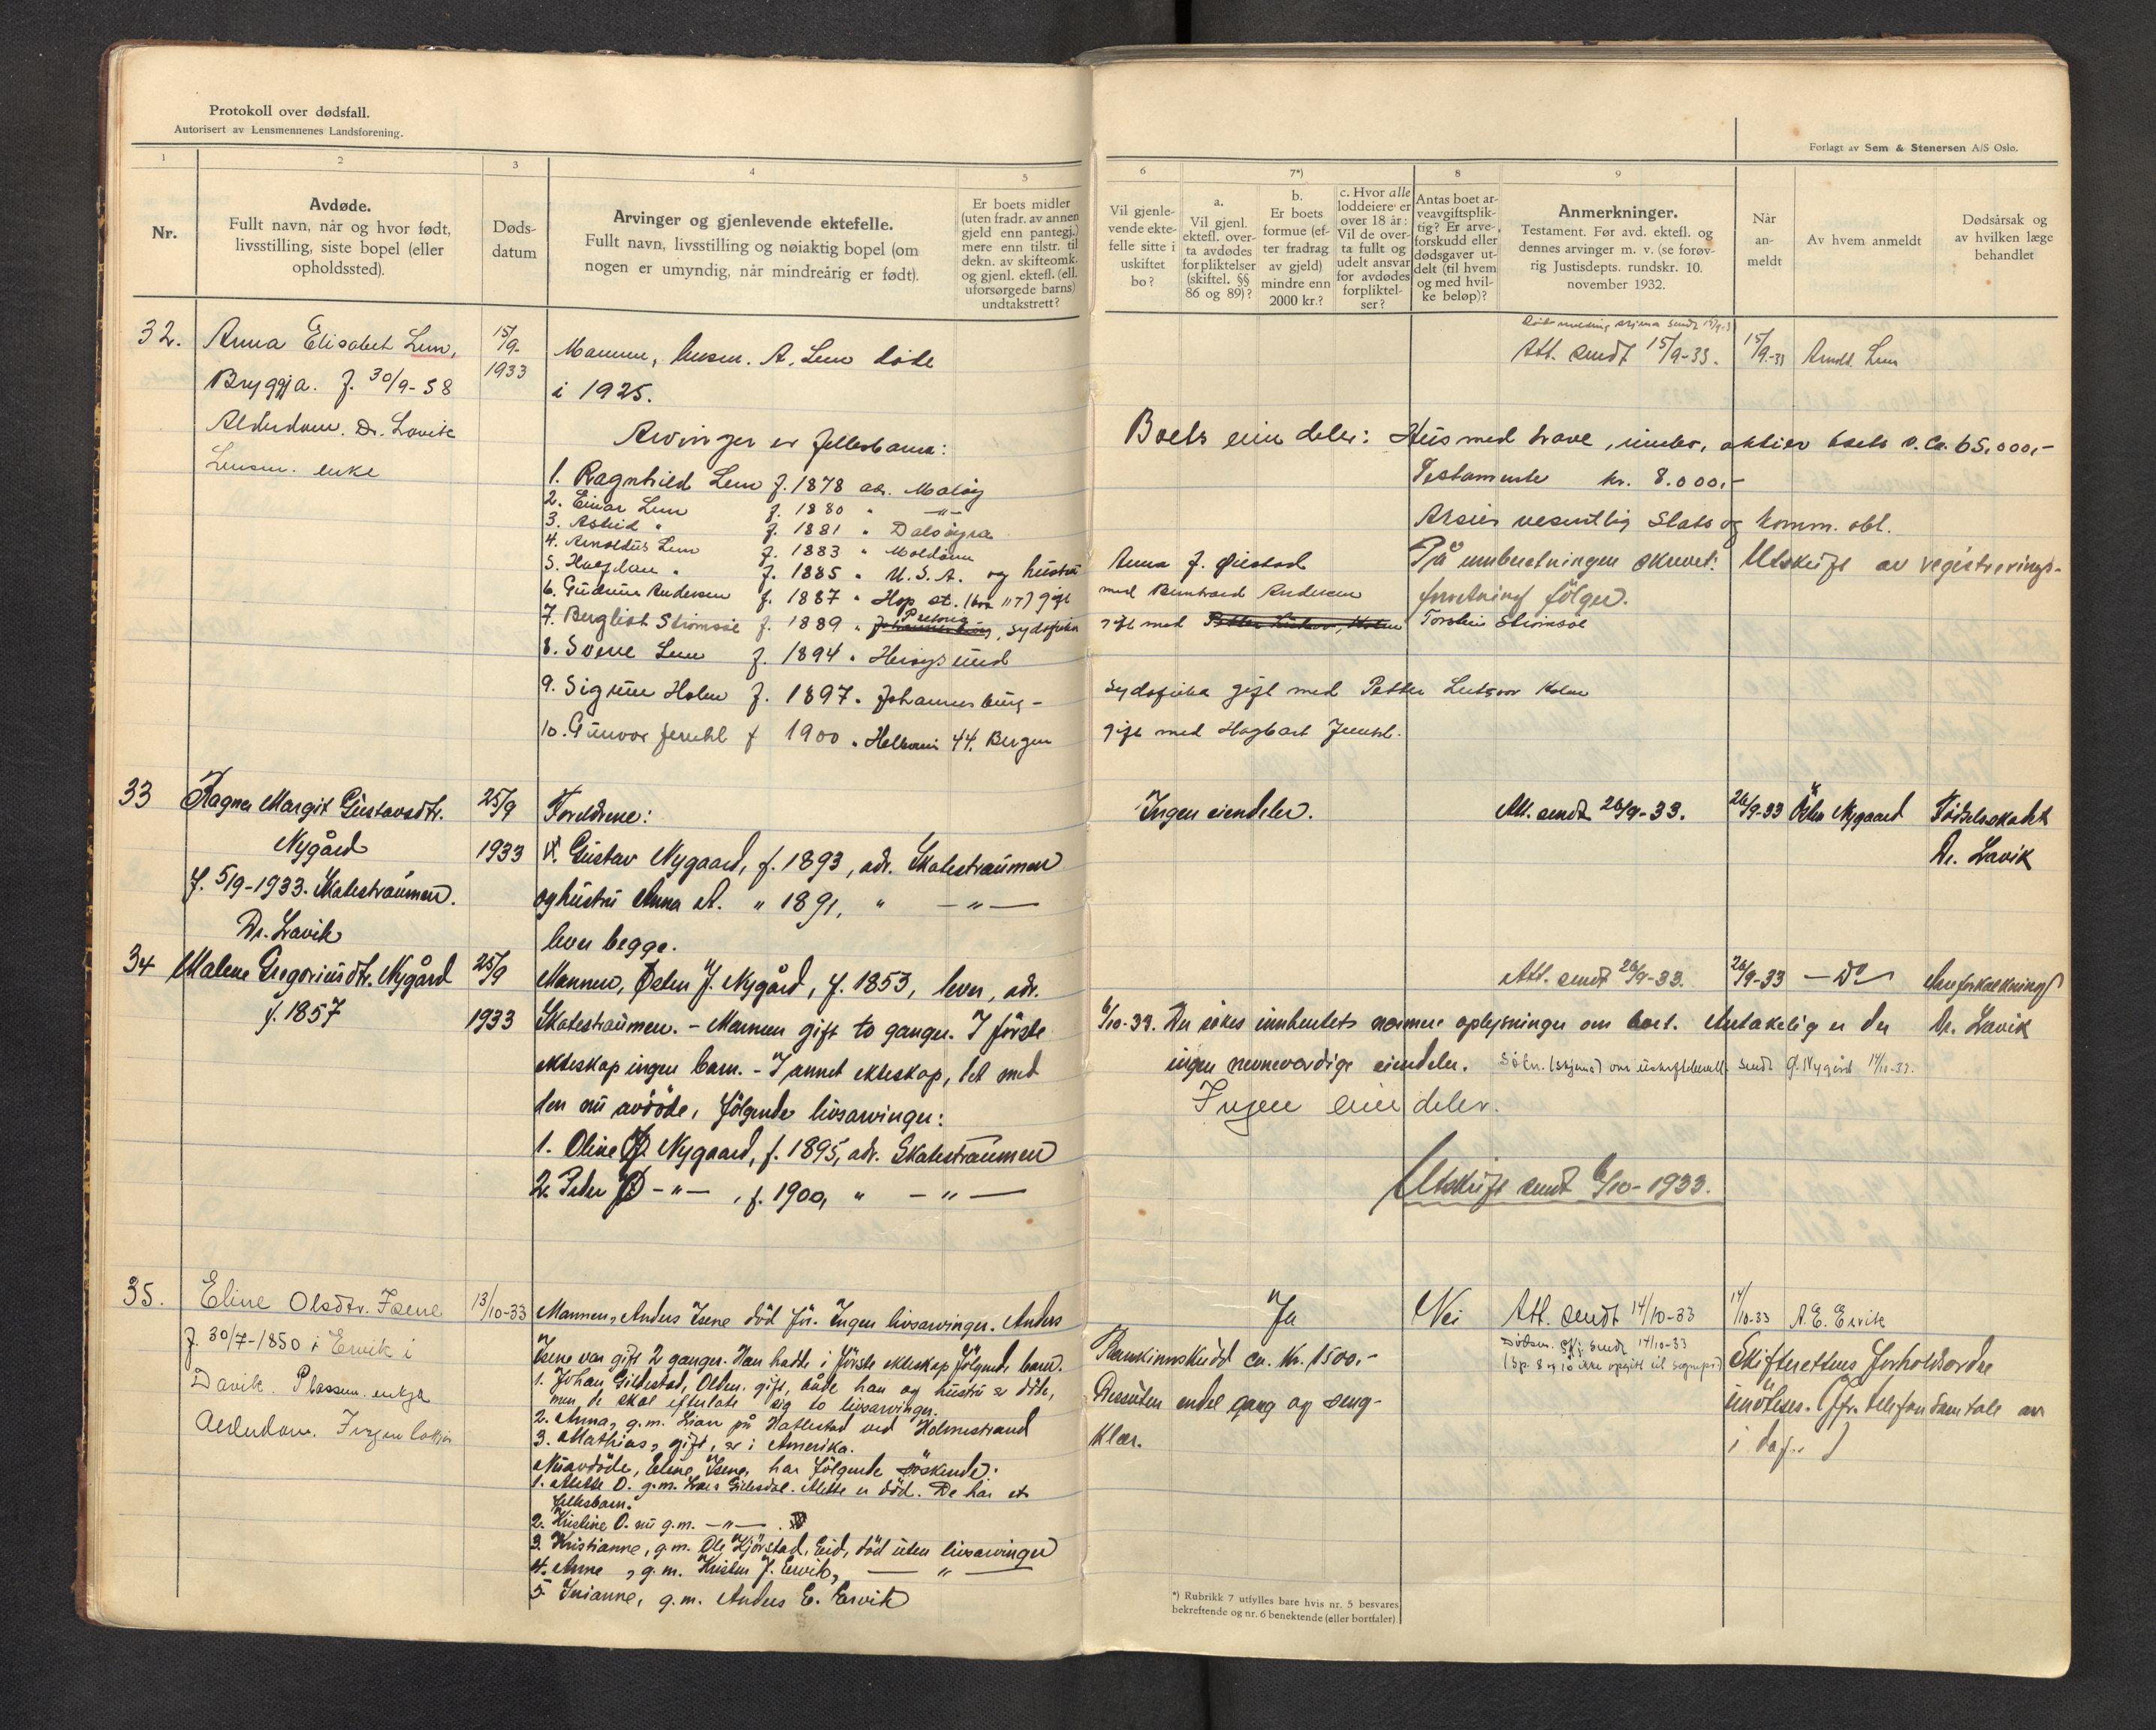 Protokoll over dødsfall.
Autorisert av Lensmennenes Landsforening.
Forlagt av Sem & Stenersen A/S Oslo.
1
2
3
4
5
6
7*)
8
9
Nr.
Avdøde.
Fullt navn, når og hvor født,
livsstilling, siste bopel (eller
opholdssted).
Døds-
datum
Arvinger og gjenlevende ektefelle.
Fullt navn, livsstilling og nøiaktig bopel (om
nogen er umyndig, når mindreårig er født).
Er boets midler
(uten fradr. av annen
gjeld enn pantegj.)
mere enn tilstr. til
dekn. av skifteomk.
og gjenl. ektef. (ell.
uforsørgede barns)
undtakstrett?
Vil gjenle-
vende ekte-
felle sitte i
uskiftet
bo?
a.
Vil gjenl.
ektefl. over-
ta avdødes
forpliktelser
(skiftel. §§
86 og 89)?
b.
Er boets
formue (ef-
ter fradrag
av gjeld)
mindre enn
2000 kr.?
c. Hvor alle
loddeiere er
over 18 år:
Vil de over-
ta fullt og
udelt ansvar
for avdødes
forpliktel-
ser?
Antas boet ar-
veavgiftsplik-
tig? Er arve-
forskudd eller
dødsgaver ut-
delt (til hvem
og med hvil-
ke beløp)?
Anmerkninger.
Testament. Før avd. ektefl. og
dennes arvinger m. v. (se forøv-
rig Justisdepts. rundskr. 10.
november 1932.
Når
an-
meldt
Av hvem anmeldt
Dødsårsak og
av hvilken læge
behandlet
32.
Anna Elisabet Lem,
Bryggja. f. 30/9-58
Alderdom. Dr. Lavik
Lensm. enke
15/9-
1933
Mannen, lensm. A. Lem døde
i 1925.
Arvinger er fellesbarna:
1. Ragnhild Lem f. 1878 adr. Måløy
2. Einar Lem f. 1880 " -"-
3. Astrid " f. 1881 " Dalsøyra
4. Arnoldus Lem f. 1883 "
5. Halfdan " f. 1885 " U.S.A. og hustru
6. Gudrun Andersen f. 1887 " Hop st. gift
7. Bergliot Strømsøe f. 1889 " Pretoria Johannesburg, Sydafrika
8. Sverre Lem f. 1894 "
9. Sigrun Holm f. 1897 " Johannesburg -
10. Gunvor f. 1900 " 44. Bergen
Att. sendt 15/9-33.
15/9-33
Lem
Boets eiendeler: Hus med have, innbo, aktier ca. 65.000,-
Testamente kr. 8.000,-
vesentlig Stats og komm. obl.
Anna f.
På innberetningen skrevet: Utskrift av registrerings-
med Andersen
forretning følger.
gift med Torstein Strømsøe
Sydafrika gift med Petter Holm
gift med Hagbart
33
Ragna Margit Gustavsdtr.
Nygård
f. 5/9-1933. Skatestraumen.
Dr. Lavik
25/9
1933
Foreldrene:
Gustav Nygaard, f. 1893, adr. Skatestraumen
og hustru Anna A. " 1891, " -"-
lever begge.
Ingen eiendeler.
Att. sendt 26/9-33.
26/9-33
Østen Nygaard
Fødselsskadet
Dr. Lavik
34
Malene Gregoriusdtr. Nygård
f. 1857
25/9
1933
Mannen, Østen J. Nygård, f. 1853, lever, adr.
Skatestraumen. - Mannen gift to ganger. I første
ekteskap ingen barn. - I annet ekteskap, det med
den nu avdöde, følgende livsarvinger:
1. Oline Ø. Nygaard, f. 1895, adr. Skatestraumen
2. Peder Ø. -"- , f. 1900, " -"-
Att. sendt 26/9-33.
26/9-33
- Do -
Åreforkalkning
Dr. Lavik
6/10-33. Der søkes innhentet nærmere oplysninger om boet. Antakelig er der
ingen nevneverdige eiendeler. om sendt G. Nygård 14/10-33.
Ingen eiendeler.
Utskrift sendt 6/10-1933.
35.
Eline Olsdtr. Isene
f. 30/7-1850 i Ervik i
Davik. Plassm. enkja
Alderdom. Ingen lækja
13/10-33
Mannen, Anders Isene död för. Ingen livsarvinger. Anders
Isene var gift 2 ganger. Han hadde i første ekteskap følgende barn.
1. Johan Gildestad, Olden. gift, både han og hustru er döde,
men de skal efterlate sig to livsarvinger.
2. Anna, g.m. Lian på Hallestad ved Holmestrand
3. Mathias, gift, er i Amerika.
Nuavdöde, Eline Isene, har følgende søskende:
1. Mette O. g.m. Lars Gilesdal. Mette er död. De har et
fellesbarn.
2. Kristine O. nu g.m. -"-
3. Kristianne, g.m. Ole Hjörstad, Eid, död uten livsarvinger
4. Anne, g.m. Kristen J. Ervik, -"-
5. Inianne, g.m. Anders E. Ervik
Ja
Nei
Att. sendt 14/10-33
14/10-33
A. E. Ervik
Bankinnskudd ca. kr. 1500,-
Dessuten endel gang og seng-
klær.
Dødsm. skj. sendt 14/10-33
Skifterettens forholdsordre
(Jfr. telefonsamtale av
i dag.)
*) Rubrikk 7 utfylles bare hvis nr. 5 besvares
bekreftende og nr. 6 benektende (eller bortfaler).